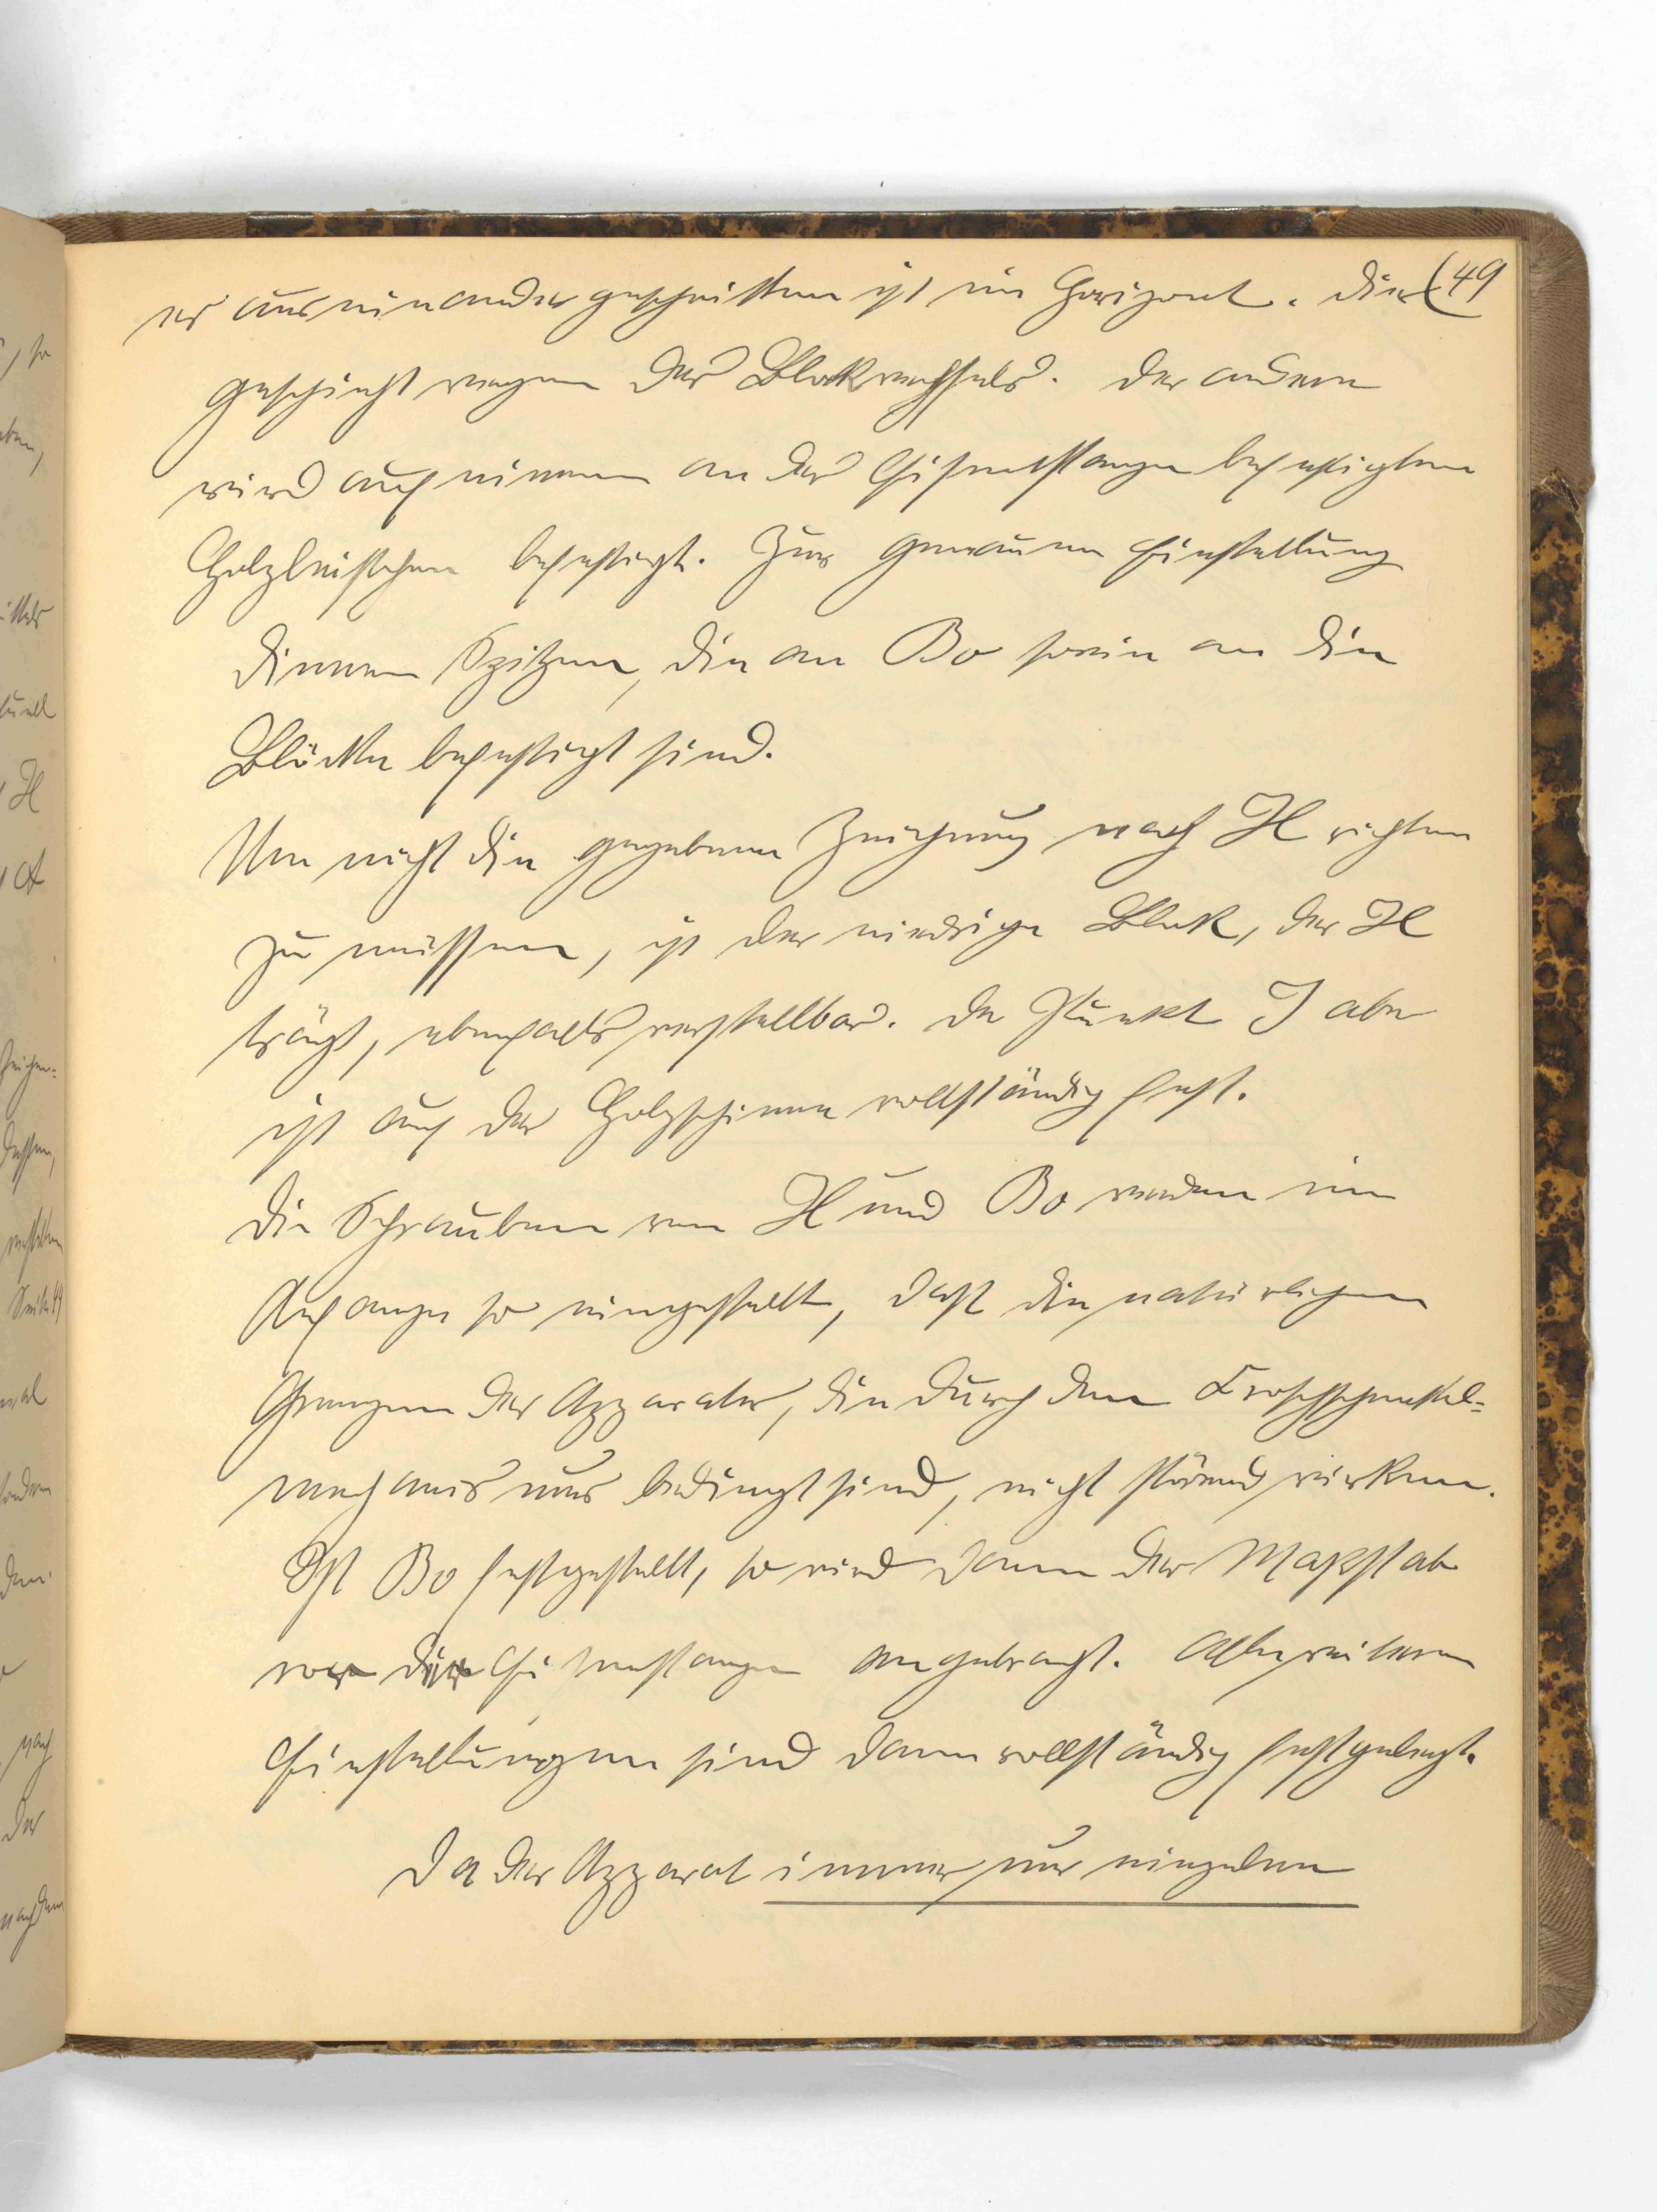 er auseinandergeschnitten ist im Horizont. Dies (49
geschieht wegen des Blockwechsels. Der andere
wird auf einem an der Eisenstange befestigten
Holzleistchen befestigt. Zur genauen Einstellung
dienen Spitzen, die an Bo sowie an die
Blöcke befestigt sind.
Um nicht die gegebene Zeichnung nach H richten
zu müssen, ist der niedrige Block, der H
trägt, ebenfalls verstellbar. Der Punkt J aber
ist auf der Holzschiene vollständig fest.
Die Schrauben von H und Bo werden im
Anfange so eingestellt, daß die natürlichen
Grenzen des Apparates, die durch den Froschschenkel-
mechanismus bedingt sind, nicht störend wirken.
Ist Bo festgestellt, so wird dann der Maßstab
von der Eisenstange angebracht. Alle weiteren
Einstellungen sind dann vollständig festgelegt.
Da der Apparat immer nur einzelne